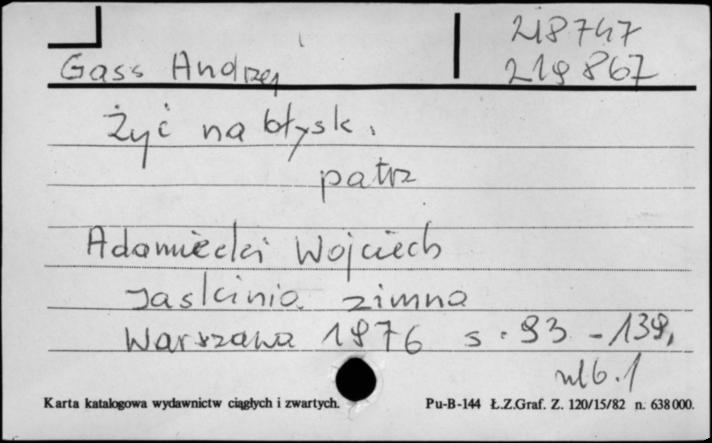 218747
Gass Andrzej 219867
Żyć na błysk.
patrz
Adamiecki Wojciech
Jaskinia zimna
Warszawa 1976 s. 93 - 139,
nlb. 1
Karta katalogowa wydawnictw ciągłych i zwartych. Pu-B-144 Ł.Z.Graf. Z. 120/15/82 n. 638000.